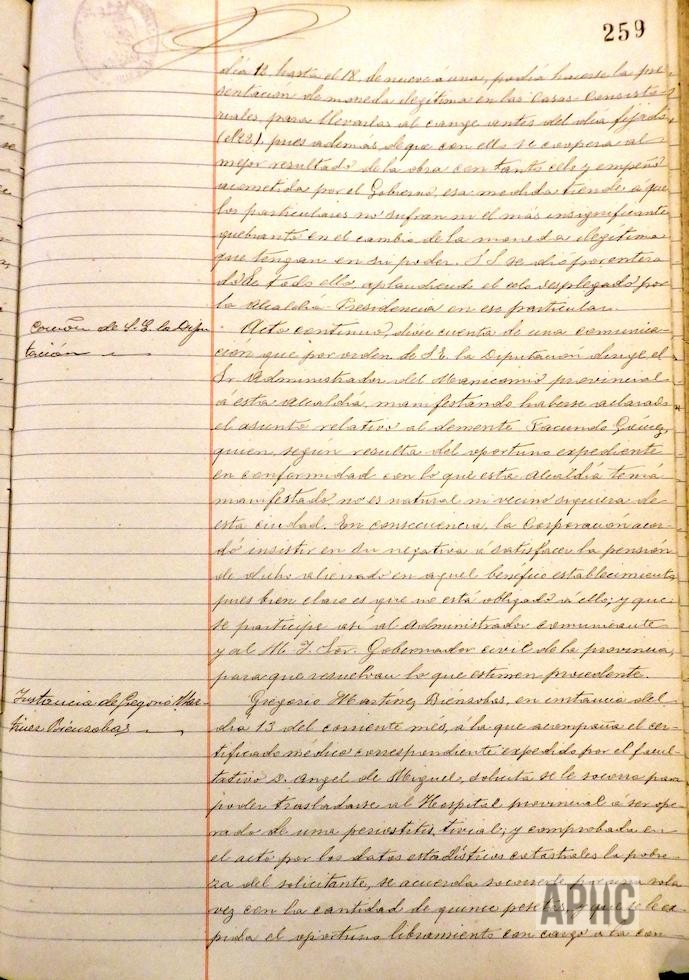 259
día 12 hasta el 18, de nueve á una, podrá hacerse la pre-
sentacion de moneda ilegítima en las Casas Consisto-
riales, para llevarlas al cange antes del dia fijado
pues además de que con ello se coopera al
mejor resultado de la obra con tanto celo y empeño
acometida por el Gobierno, esa medida tiende á que
los particulares no sufran ni el más insignificante
quebranto en el cambio de la moneda ilegítima
que tengan en su poder. S.S. se dió por entera-
do de todo ello, aplaudiendo el celo desplegado por
la Alcaldía Presidencia en ese particular.
Comón de S.E. la Dipu-
tación
Acto continuo, dióse cuenta de una comunica-
ción que por orden de S.E. la Diputacion dirije el
Sr Administrador del Manicomio provincial
á esta Alcaldía, manifestando haberse aclarado
el asunto relativo al demente Facundo
quien, según resulta del oportuno expediente
en conformidad con lo que esta Alcaldía tenia
manifestado, no es natural ni vecino siquiera de
esta ciudad. En consecuencia, la Corporación acor-
dó insistir en su negativa á satisfacer la pensión
de dicho alienado en aquel benéfico establecimiento
pues bien claro es que no está obligado á ello; y que
se participe así al Administrador comunicante
y al M. I. Sor. Gobernador civil de la provincia,
para que resuelvan lo que estimen procedente.
Instancia de Gregorio Mar-
tínez Biensobas
Gregorio Martínez Biensobas, en instancia del
dia 13 del corriente més, á la que acompaña el cer-
tificado médico correspondiente expedido por el facul-
tativo D. Angel de Miguel, solicita se le socorra para
poder trasladarse al Hospital provincial a ser ope-
rado de una periostitis tivial; y comprobada en
el acto por los datos estadísticos catastrales la pobre-
za del solicitante, se acuerda socorrerle por una sola
vez con la cantidad de quince pesetas, y que se le ex-
pida el oportuno libramiento con cargo á la con-
APHC